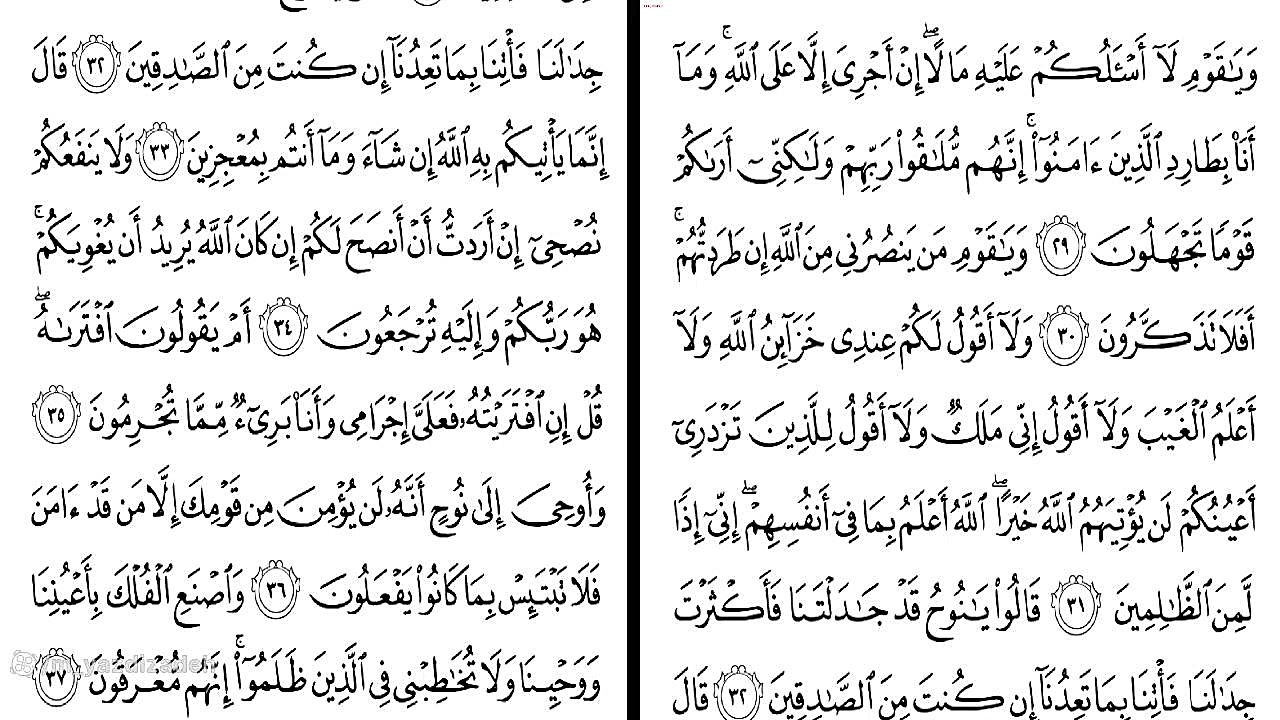 وَيَٰقَوۡمِ لَآ أَسۡـَٔلُكُمۡ عَلَيۡهِ مَالًاۖ إِنۡ أَجۡرِيَ إِلَّا عَلَى ٱللَّهِۚ وَمَآ
أَنَا۠ بِطَارِدِ ٱلَّذِينَ ءَامَنُوٓاْۚ إِنَّهُم مُّلَٰقُواْ رَبِّهِمۡ وَلَٰكِنِّيٓ أَرَىٰكُمۡ
قَوۡمٗا تَجۡهَلُونَ ٢٩ وَيَٰقَوۡمِ مَن يَنصُرُنِي مِنَ ٱللَّهِ إِن طَرَدتُّهُمۡۚ
أَفَلَا تَذَكَّرُونَ ٣٠ وَلَآ أَقُولُ لَكُمۡ عِندِي خَزَآئِنُ ٱللَّهِ وَلَآ
أَعۡلَمُ ٱلۡغَيۡبَ وَلَآ أَقُولُ إِنِّي مَلَكٞ وَلَآ أَقُولُ لِلَّذِينَ تَزۡدَرِيٓ
أَعۡيُنُكُمۡ لَن يُؤۡتِيَهُمُ ٱللَّهُ خَيۡرًاۖ ٱللَّهُ أَعۡلَمُ بِمَا فِيٓ أَنفُسِهِمۡۖ إِنِّيٓ إِذٗا
لَّمِنَ ٱلظَّٰلِمِينَ ٣١ قَالُواْ يَٰنُوحُ قَدۡ جَٰدَلۡتَنَا فَأَكۡثَرۡتَ
جِدَٰلَنَا فَأۡتِنَا بِمَا تَعِدُنَآ إِن كُنتَ مِنَ ٱلصَّٰدِقِينَ ٣٢ قَالَ
جِدَٰلَنَا فَأۡتِنَا بِمَا تَعِدُنَآ إِن كُنتَ مِنَ ٱلصَّٰدِقِينَ ٣٢ قَالَ
إِنَّمَا يَأۡتِيكُم بِهِ ٱللَّهُ إِن شَآءَ وَمَآ أَنتُم بِمُعۡجِزِينَ ٣٣ وَلَا يَنفَعُكُمۡ
نُصۡحِيٓ إِنۡ أَرَدتُّ أَنۡ أَنصَحَ لَكُمۡ إِن كَانَ ٱللَّهُ يُرِيدُ أَن يُغۡوِيَكُمۡۚ
هُوَ رَبُّكُمۡ وَإِلَيۡهِ تُرۡجَعُونَ ٣٤ أَمۡ يَقُولُونَ ٱفۡتَرَىٰهُۖ
قُلۡ إِنِ ٱفۡتَرَيۡتُهُۥ فَعَلَيَّ إِجۡرَامِي وَأَنَا۠ بَرِيٓءٞ مِّمَّا تُجۡرِمُونَ ٣٥
وَأُوحِيَ إِلَىٰ نُوحٍ أَنَّهُۥ لَن يُؤۡمِنَ مِن قَوۡمِكَ إِلَّا مَن قَدۡ ءَامَنَ
فَلَا تَبۡتَئِسۡ بِمَا كَانُواْ يَفۡعَلُونَ ٣٦ وَٱصۡنَعِ ٱلۡفُلۡكَ بِأَعۡيُنِنَا
وَوَحۡيِنَا وَلَا تُخَٰطِبۡنِي فِي ٱلَّذِينَ ظَلَمُوٓاْۚ إِنَّهُم مُّغۡرَقُونَ ٣٧
m_yazdizadeh